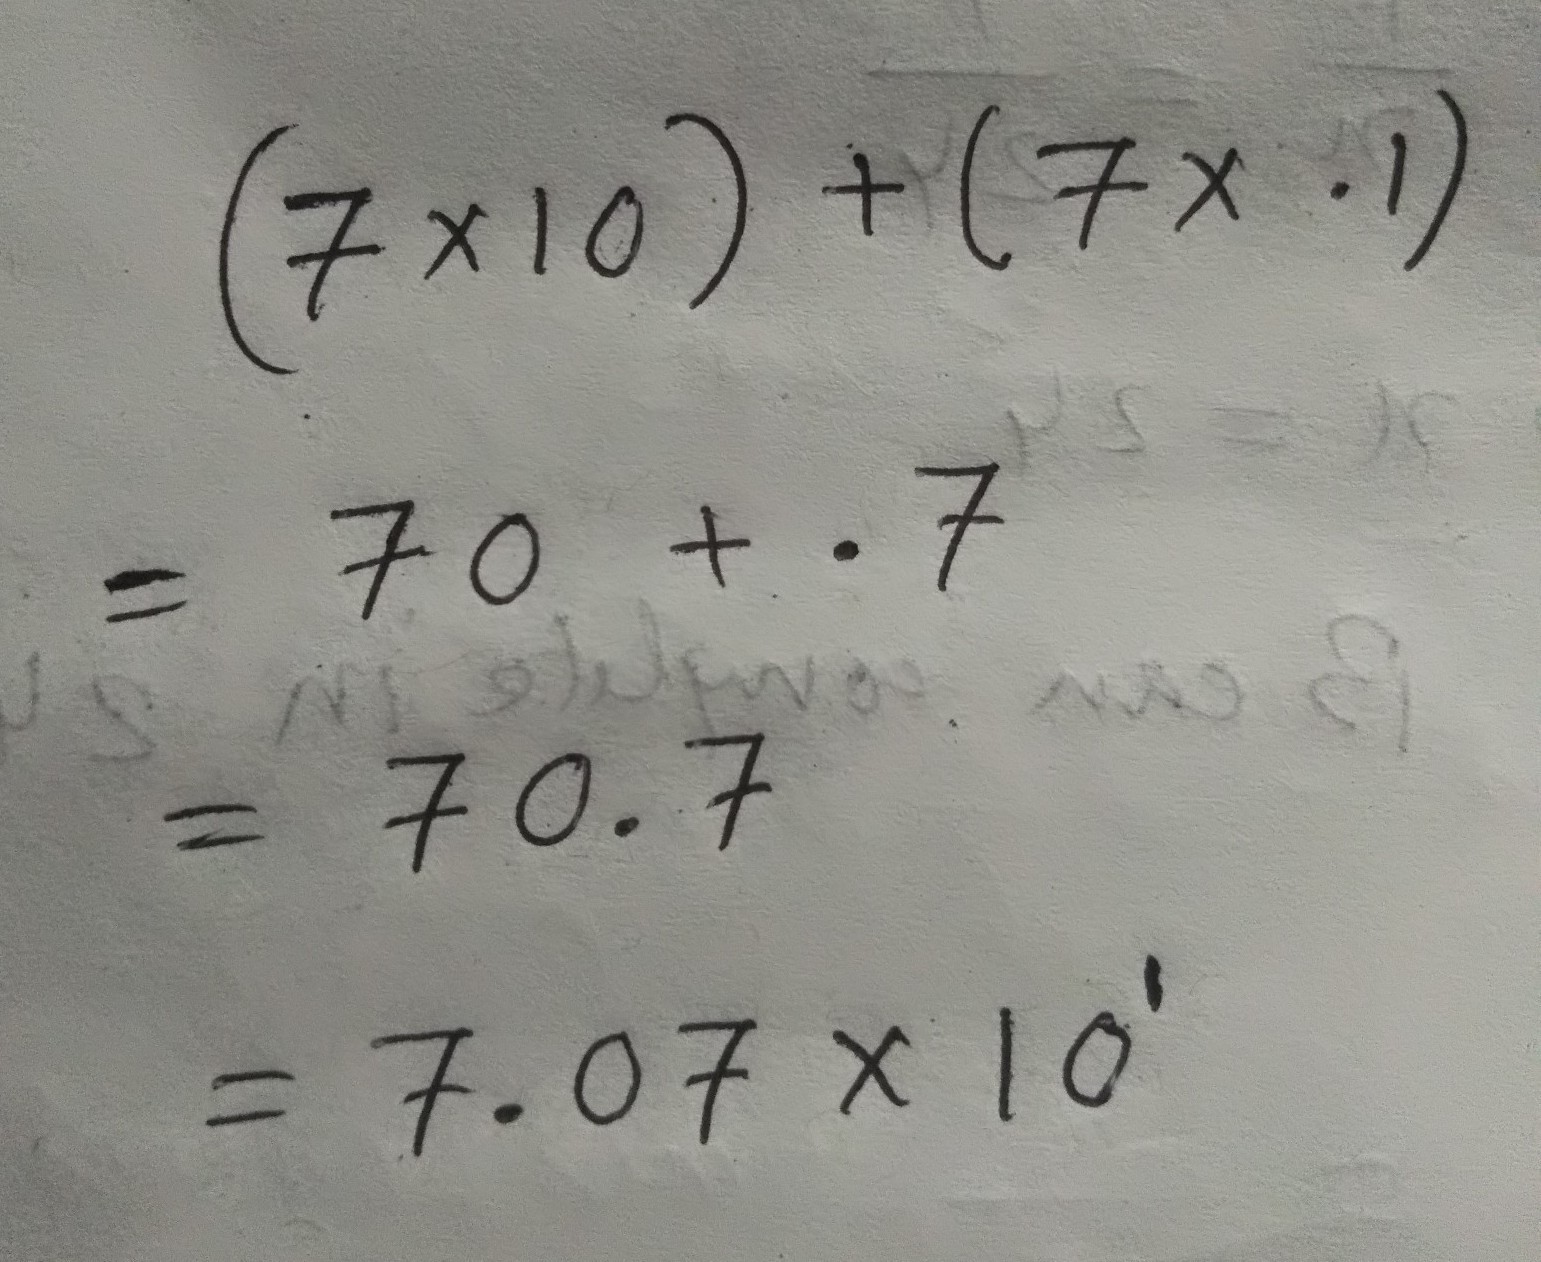 (7 × 10) + (7 × .1)
= 70 + .7
= 70.7
= 7.07 × 10¹